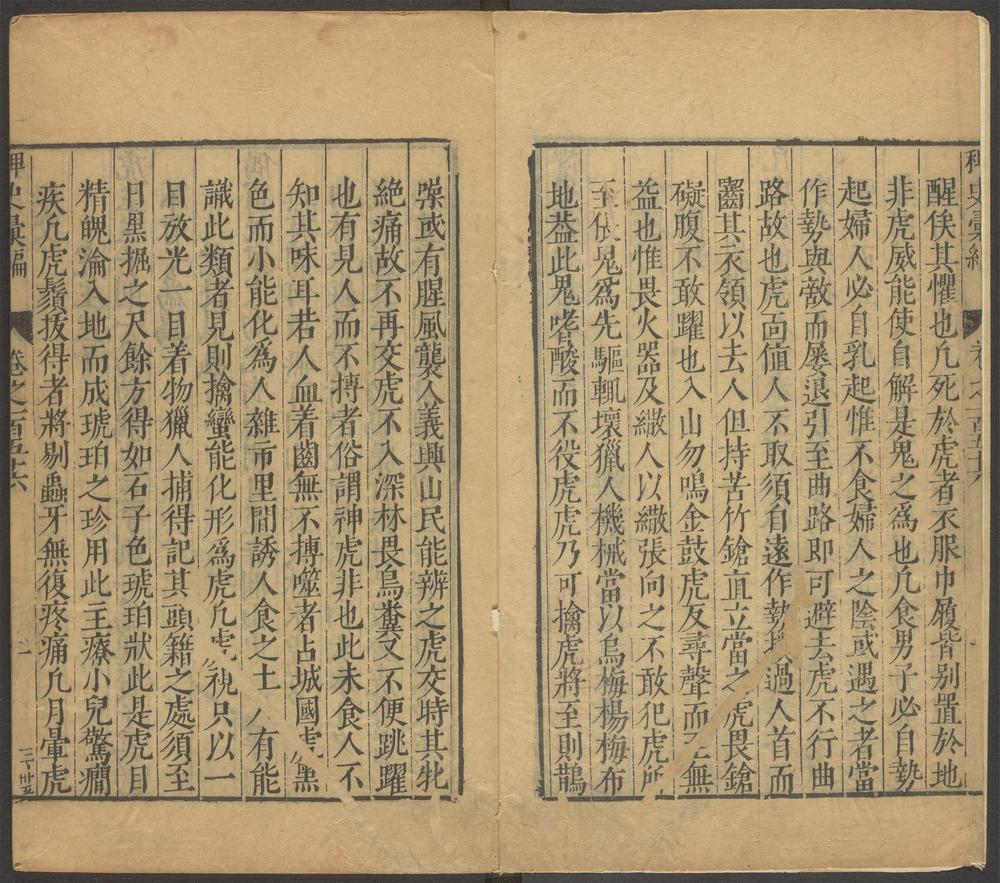 醒俟其懼也凢死於虎者衣服巾履皆别置於地
非虎威能使自解是鬼之爲也凢食男子必自勢
起婦人必自乳起惟不食婦人之陰或遇之者當
作勢與敵而屡退引至曲路即可避去虎不行曲
路故也虎靣值人不取須自遠作勢過人首而
齧其衣領以去人但持苦竹鎗直立當之虎畏鎗
礙腹不敢躍也入山勿鳴金鼓虎反尋聲而至無
益也惟畏火器及繖人以繖張向之不敢犯虎所
至倀鬼爲先驅輒壞獵人機械當以烏梅楊梅布
地葢此鬼嗜酸而不役虎虎乃可擒虎將至則鵲
噪或有腥風襲人義興山民能辨之虎交時其牝
絶痛故不再交虎不入深林畏鳥糞又不便跳躍
也有見人而不搏者俗謂神虎非也此未食人不
知其味耳若人血着齒無不搏噬者占城國虎黑
色而小能化爲人雜市里間誘人食之土人有能
識此類者見則擒蠻能化形爲虎凢虎視只以一
目放光一目着物獵人捕得記其頭籍之處須至
日黒掘之尺餘方得如石子色琥珀狀此是虎目
精魄淪入地而成琥珀之珍用此主療小兒驚癇
疾凢虎鬚拔得者將剔蟲牙無復疼痛凢月暈虎
稗史彙編
卷之一百五十六